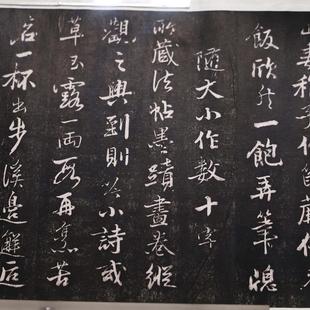 山妻稚子作筍蕨供
飯欣然一飽弄筆窓
隨大小作数十字
所藏法帖墨蹟畫卷縱
觀之興到則吟小詩或
草玉露一兩段再烹苦
茗一杯出步溪邊邂逅